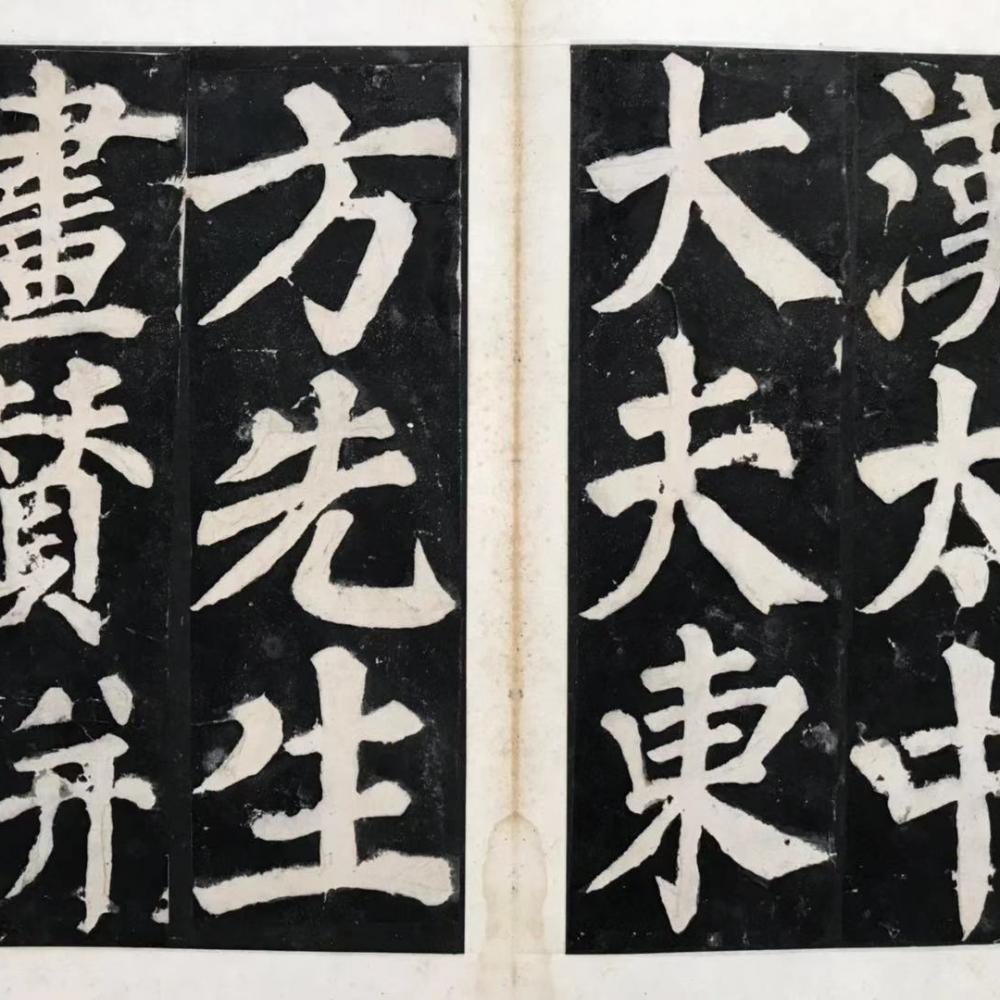 漢太中
大夫東
方先生
畫贊并